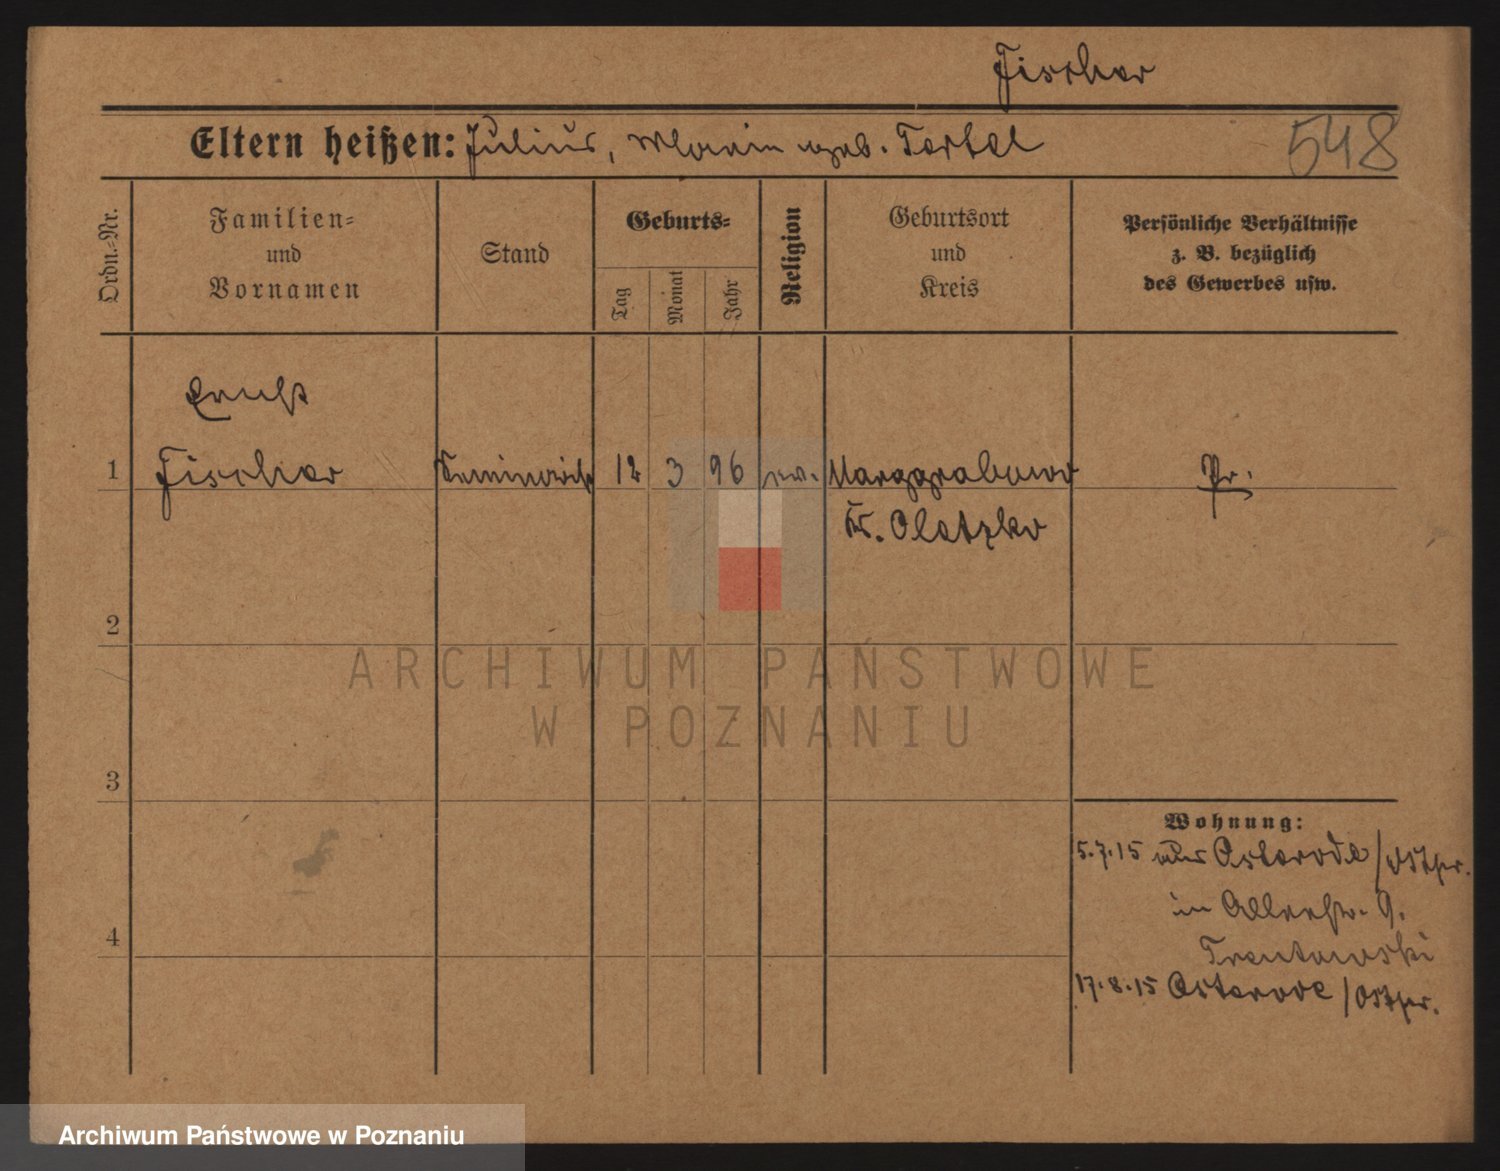 Fischer
Eltern heißen: Julius, geb. Tertel
548
Ordn.-Nr.
Familien-
und
Vornamen
Stand
Geburts-
Tag
Monat
Jahr
Religion
Geburtsort
und
Kreis
Persönliche Verhältnisse
z. B. bezüglich
des Gewerbes usw.
Ernst
1 Fischer Seminarist 12 3 96 ev. Marggrabowo Pr.
Kr. Oletzko
2
ARCHIWUM PAŃSTWOWE
W POZNANIU
3
Wohnung:
5.7.15 Osterode/Ostpr.
in 9.
4
Trentowski
17.8.15 Osterode/Ostpr.
Archiwum Państwowe w Poznaniu